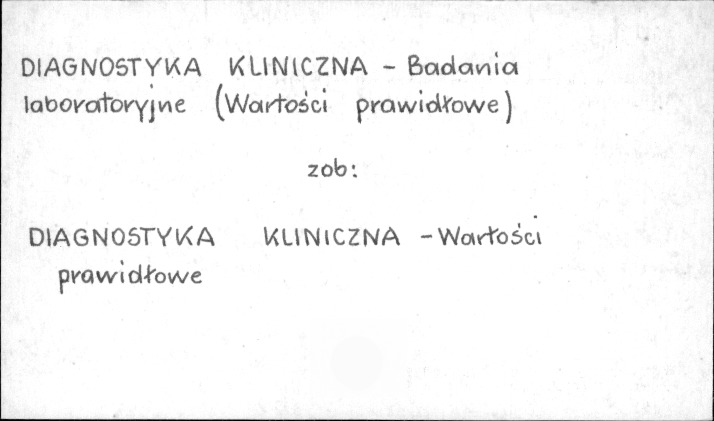 DIAGNOSTYKA KLINICZNA - Badania
laboratoryjne (Wartości prawidłowe)
zob:
DIAGNOSTYKA KLINICZNA - Wartości
prawidłowe